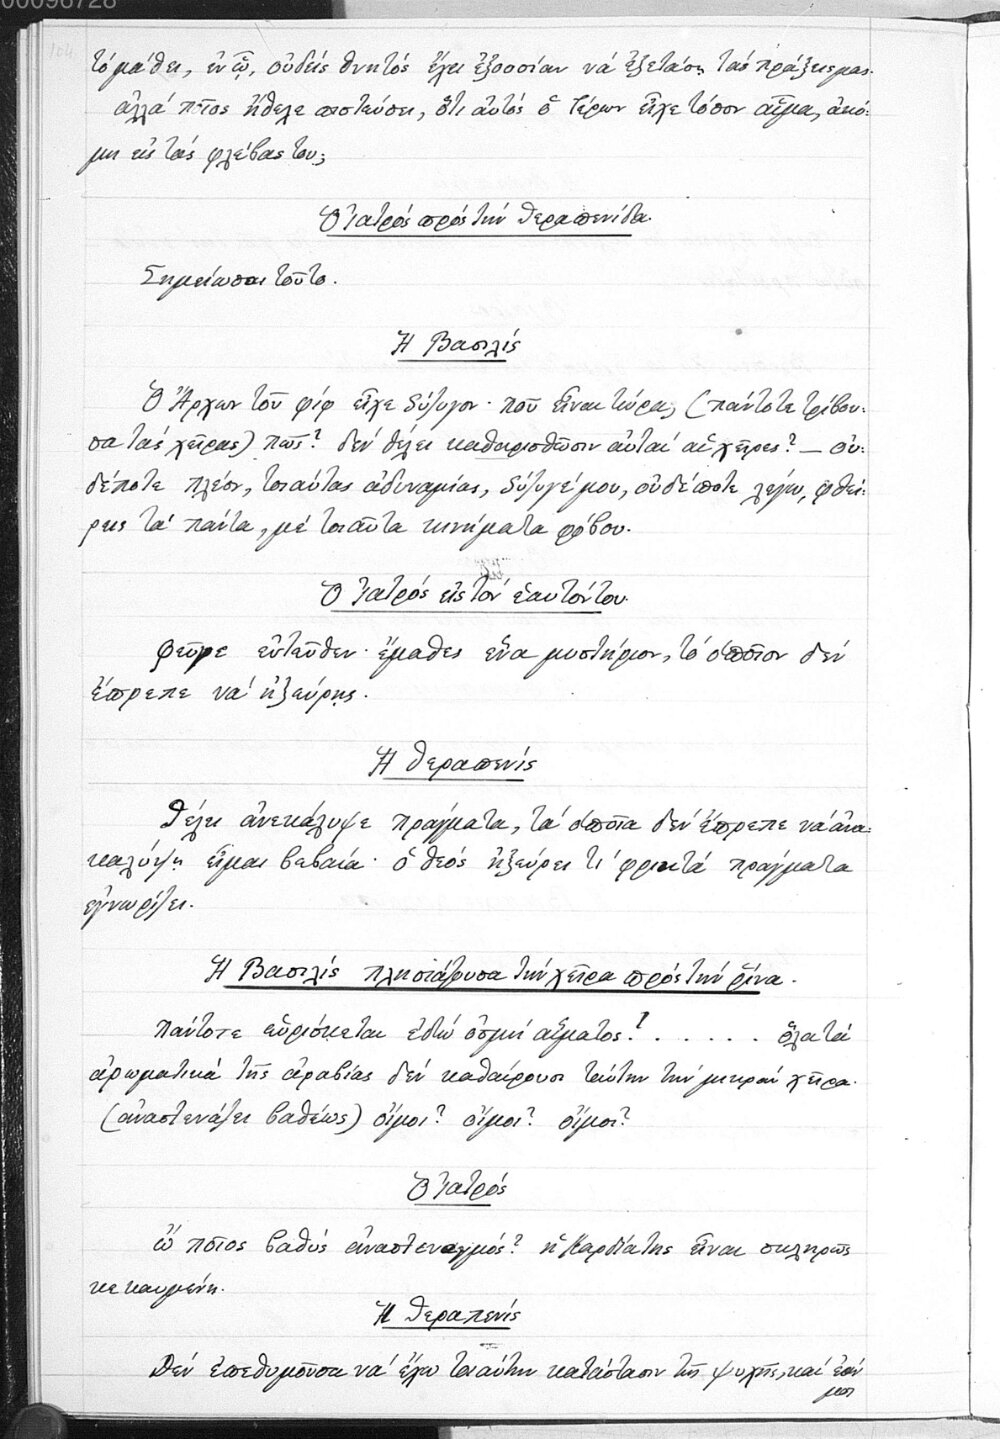 00096728
104
τό μάθει, ἐν ᾧ, οὐδείς θνητός ἔχει ἐξουσίαν νά ἐξετάσῃ τάς πράξεις μας.
ἀλλά ποῖος ἤθελε πιστεύσει, ὅτι αὐτός ὁ Γέρων εἶχε τόσον αἷμα, ἀκό:
μη εἰς τάς φλέβας του;
Ὁ Ἰατρός πρός τήν θεραπενίδα.
Σημείωσαι τοῦτο.
Ἡ Βασιλίς
Ὁ Ἄρχων τοῦ φίφ εἶχε σύζυγον · ποῦ εἶναι τώρα; (πάντοτε τρίβου:
σα τάς χεῖρας) πῶς? δέν θέλει καθαρισθῶσιν αὐταί αἱ χεῖρες? — οὐ:
δέποτε πλέον, τοιαύτας ἀδυναμίας, σύζυγέ μου, οὐδέποτε λέγω, φθεί:
ρεις τά πάντα, μέ τοιαῦτα κινήματα φόβου.
Ὁ Ἰατρός εἰς τόν ἑαυτόν του.
φεῦγε ἐντεῦθεν · ἔμαθες ἕνα μυστήριον, τό ὁποῖον δέν
ἔπρεπε νά ἠξεύρῃς.
Ἡ θεραπενίς
θέλει ἀνεκάλυψε πράγματα, τά ὁποῖα δέν ἔπρεπε νά ἀνα:
καλύψῃ εἶμαι βεβαία · ὁ θεός ἠξεύρει τί φρικτά πράγματα
ἐγνωρίζει.
Ἡ Βασιλίς πλησιάζουσα τήν χεῖρα πρός τήν ῥῖνα.
πάντοτε εὑρίσκεται ἐδῶ ὀσμή αἵματος? . . . . . . ὅλα τά
ἀρωματικά τῆς ἀραβίας δέν καθαίρουσι ταύτην τήν μικράν χεῖρα.
(ἀναστενάζει βαθέως) οἴμοι? οἴμοι? οἴμοι?
Ὁ Ἰατρός
ὤ ποῖος βαθύς ἀναστεναγμός? ἡ Καρδία της εἶναι σκληρῶς
κεκαυμένη.
Ἡ θεραπενίς
Δέν ἐπεθυμοῦσα νά ἔχω τοιαύτην κατάστασιν τῆς ψυχῆς, καί ἐάν
μοι